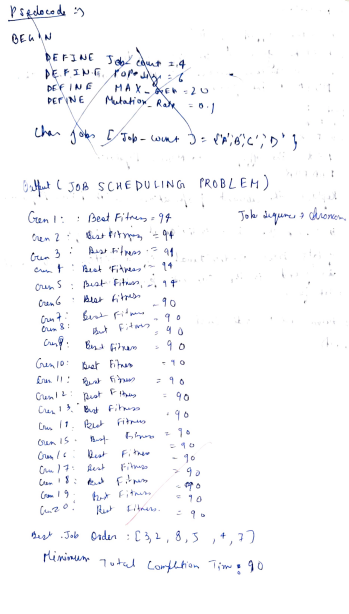 Psedocode :->
BEGIN
DEFINE Job-count = 4
DEFINE POP_size = 6
DEFINE MAX_GEN = 20
DEFINE Mutation_Rate = 0.1
Char jobs [Job-count] = {'A','B','C','D'}
Output (JOB SCHEDULING PROBLEM)
Gen 1: : Best Fitness = 94 Job sequence → chromosom
Gen 2 : Best Fitness = 94
Gen 3 : Best Fitness = 94
Gen 4 : Best Fitness = 94
Gen 5 : Best Fitness = 94
Gen 6 : Best Fitness - 90
Gen 7 : Best Fitness - 90
Gen 8 : Best Fitness = 90
Gen 9 : Best Fitness = 90
Gen 10 : Best Fitness = 90
Gen 11 : Best Fitness = 90
Gen 12 : Best Fitness = 90
Gen 13 : Best Fitness = 90
Gen 14 : Best Fitness = 90
Gen 15 - Best Fitness = 90
Gen 16 : Best Fitness - 90
Gen 17 : Best Fitness = 90
Gen 18 : Best Fitness = 90
Gen 19 : Best Fitness = 90
Gen 20 : Best Fitness. = 90
Best Job Order : [3,2,8,5,4,7]
Minimum Total Completion Time : 90